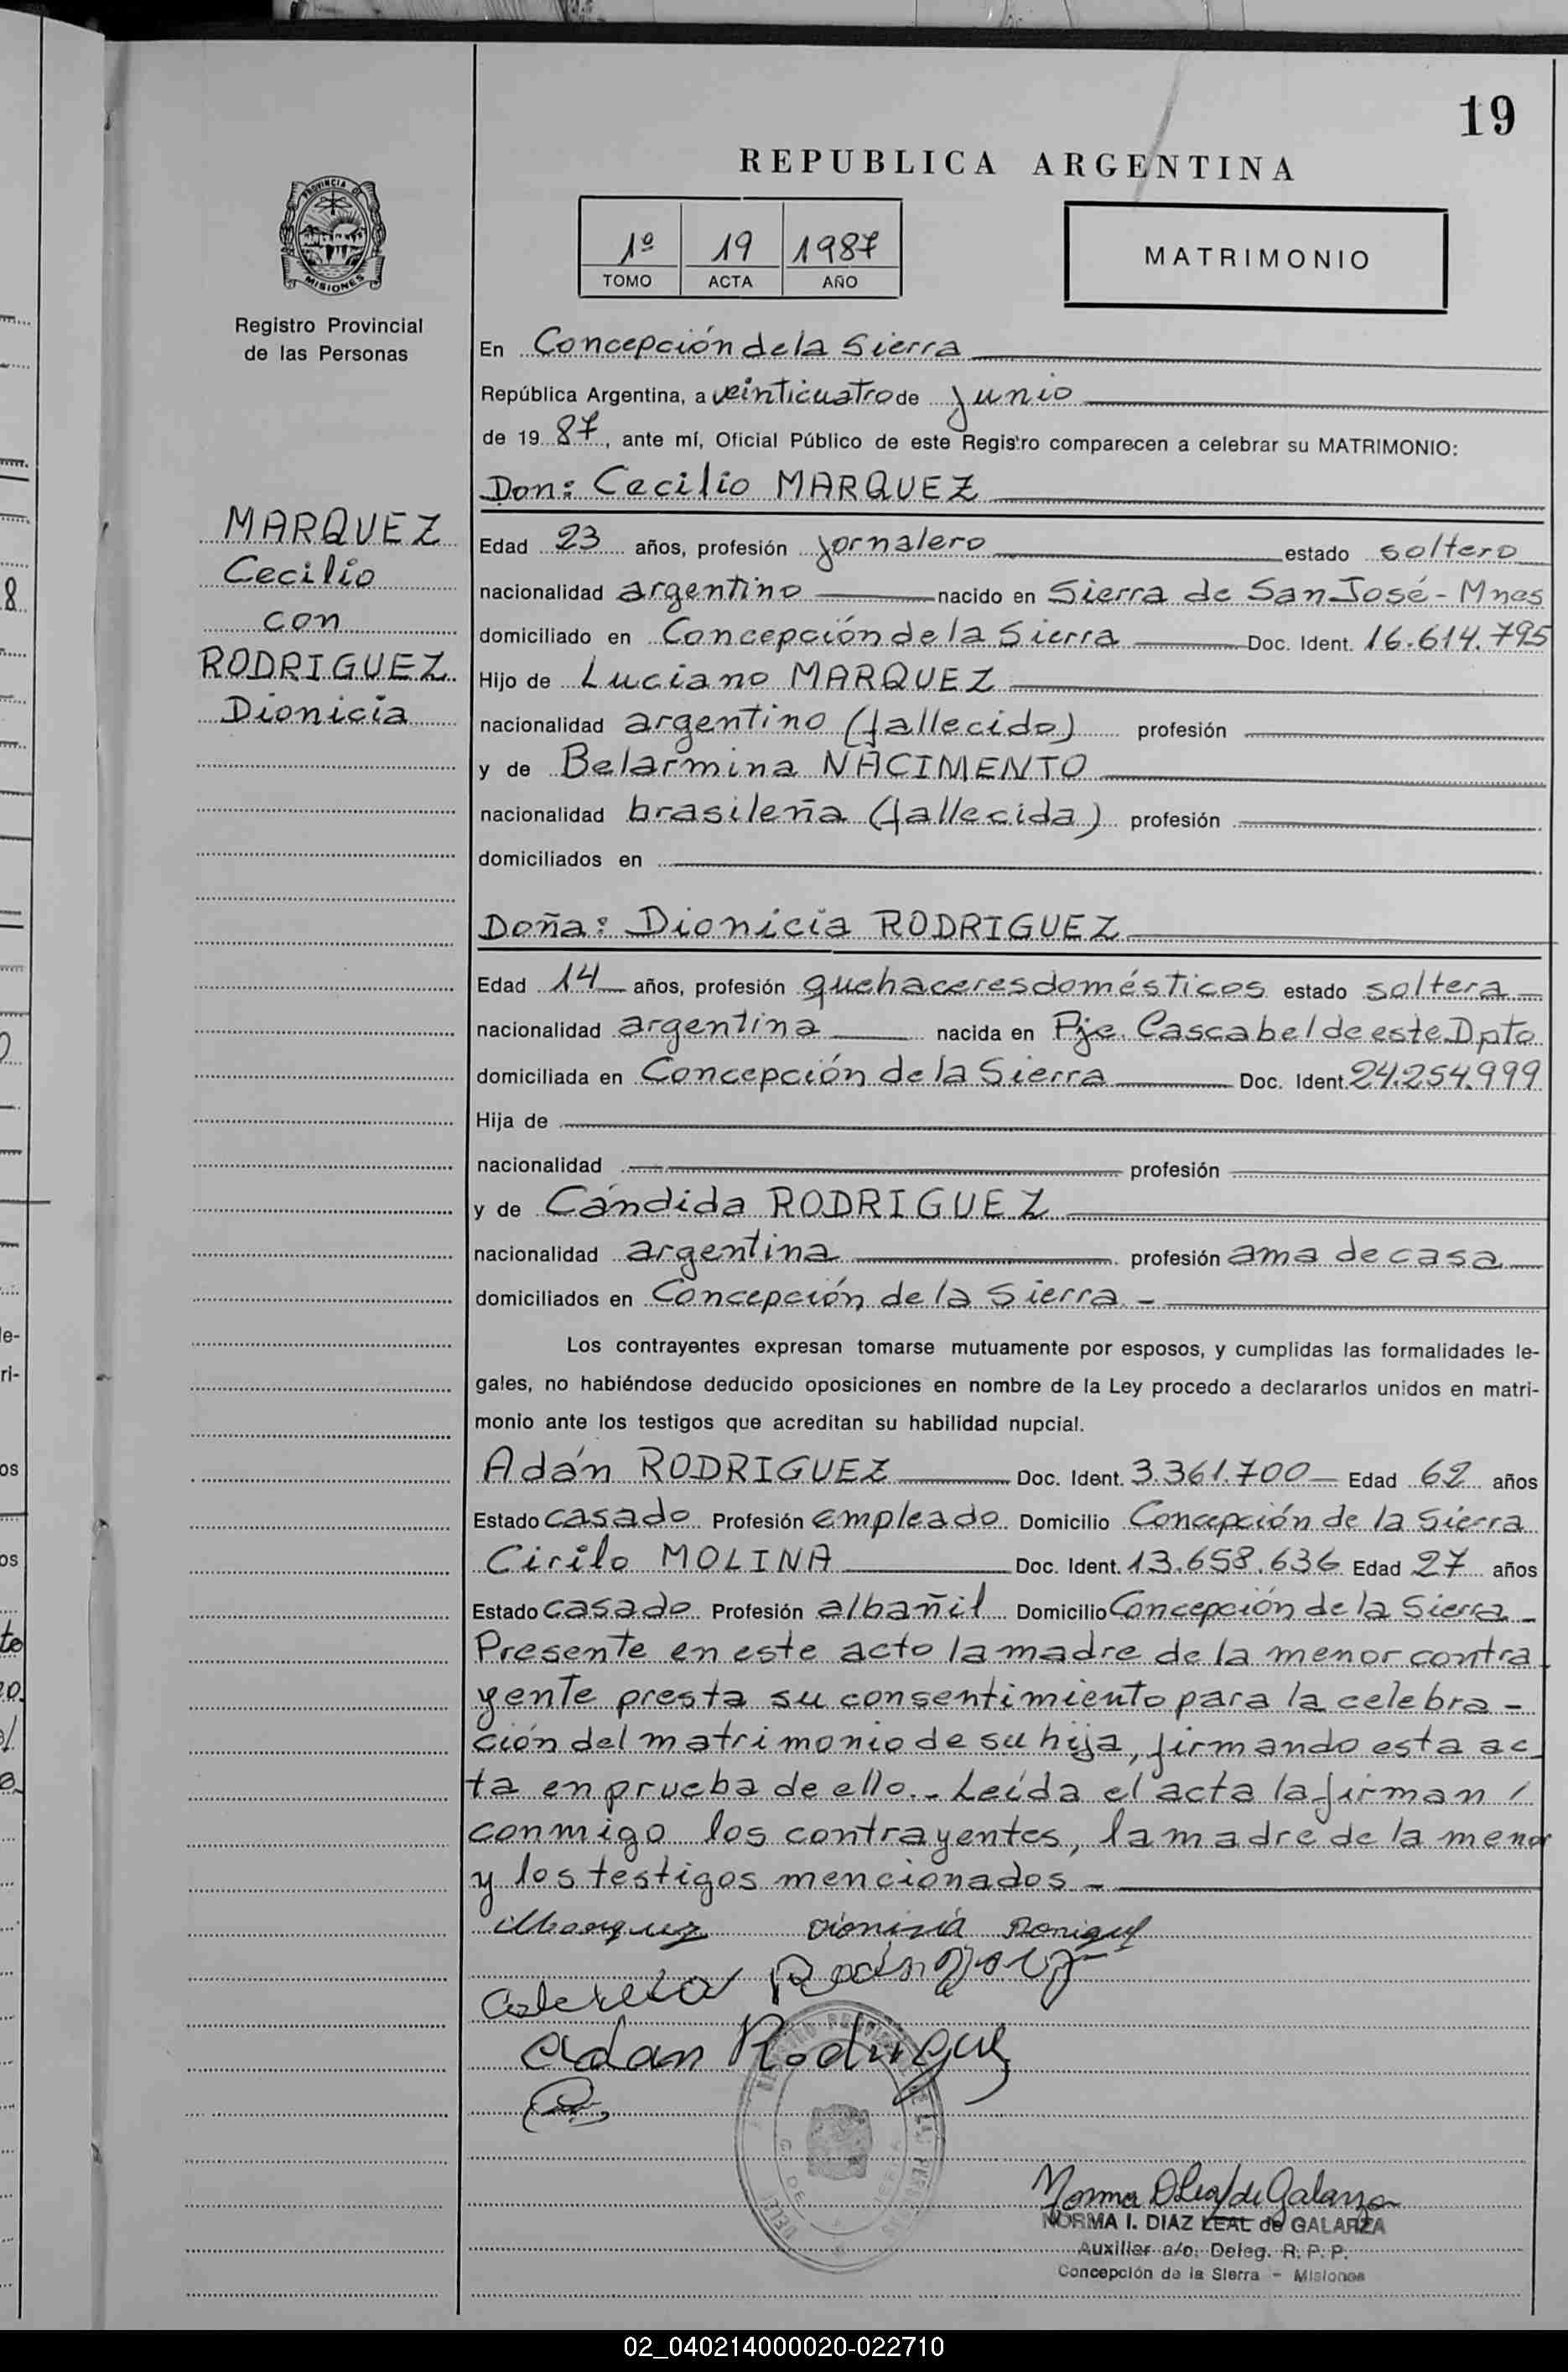 19
REPUBLICA ARGENTINA
PROVINCIA DE
MISIONES
Registro Provincial
de las Personas
1º 19 1987
TOMO ACTA AÑO
MATRIMONIO
En Concepción de la Sierra
República Argentina, a veinticuatro de junio
de 19 87, ante mí, Oficial Público de este Registro comparecen a celebrar su MATRIMONIO:
Don: Cecilio MARQUEZ
MARQUEZ
Cecilio
con
RODRIGUEZ
Dionicia
Edad 23 años, profesión jornalero estado soltero
nacionalidad argentino nacido en Sierra de San José - Mnes
domiciliado en Concepción de la Sierra Doc. Ident. 16.614.795
Hijo de Luciano MARQUEZ
nacionalidad argentino (fallecido) profesión
y de Belarmina NACIMENTO
nacionalidad brasileña (fallecida) profesión
domiciliados en
Doña: Dionicia RODRIGUEZ
Edad 14 años, profesión quehaceres domésticos estado soltera
nacionalidad argentina nacida en Pje. Cascabel de este Dpto
domiciliada en Concepción de la Sierra Doc. Ident. 24.254.999
Hija de
nacionalidad profesión
y de Cándida RODRIGUEZ
nacionalidad argentina profesión ama de casa
domiciliados en Concepción de la Sierra -
Los contrayentes expresan tomarse mutuamente por esposos, y cumplidas las formalidades le-
gales, no habiéndose deducido oposiciones en nombre de la Ley procedo a declararlos unidos en matri-
monio ante los testigos que acreditan su habilidad nupcial.
Adán RODRIGUEZ Doc. Ident. 3.361.700 Edad 62 años
Estado casado Profesión empleado Domicilio Concepción de la Sierra
Cirilo MOLINA Doc. Ident. 13.658.636 Edad 27 años
Estado casado Profesión albañil Domicilio Concepción de la Sierra -
Presente en este acto la madre de la menor contra-
yente presta su consentimiento para la celebra-
ción del matrimonio de su hija, firmando esta ac-
ta en prueba de ello.- Leída el acta la firman /
conmigo los contrayentes, la madre de la menor
y los testigos mencionados -
Adan Rodriguez
NORMA I. DIAZ LEAL de GALARZA
Auxiliar a/c. Deleg. R. P. P.
Concepción de la Sierra - Misiones
02_040214000020-022710